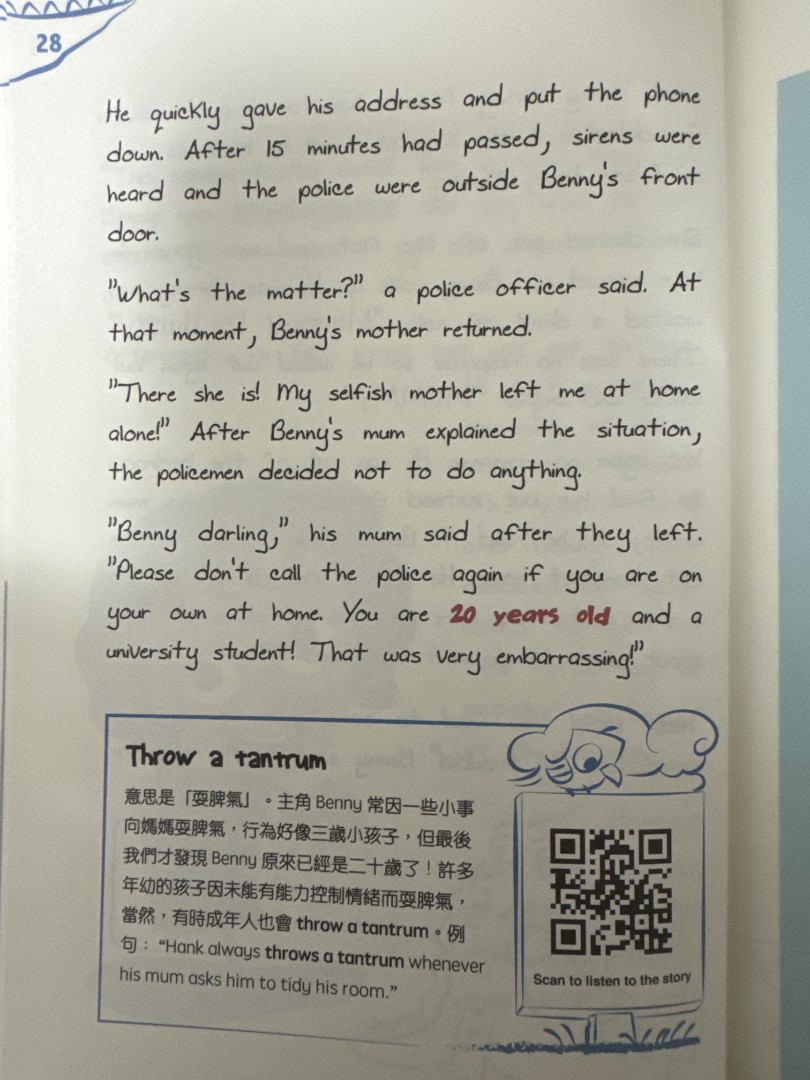 28
He quickly gave his address and put the phone
down. After 15 minutes had passed, sirens were
heard and the police were outside Benny's front
door.
"What's the matter?" a police officer said. At
that moment, Benny's mother returned.
"There she is! My selfish mother left me at home
alone!" After Benny's mum explained the situation,
the policemen decided not to do anything.
"Benny darling," his mum said after they left.
"Please don't call the police again if you are on
your own at home. You are 20 years old and a
university student! That was very embarrassing!"
Throw a tantrum
意思是「耍脾氣」。主角 Benny 常因一些小事
向媽媽耍脾氣，行為好像三歲小孩子，但最後
我們才發現 Benny 原來已經是二十歲了！許多
年幼的孩子因未能有能力控制情緒而耍脾氣，
當然，有時成年人也會 throw a tantrum。例
句："Hank always throws a tantrum whenever
his mum asks him to tidy his room."
Scan to listen to the story